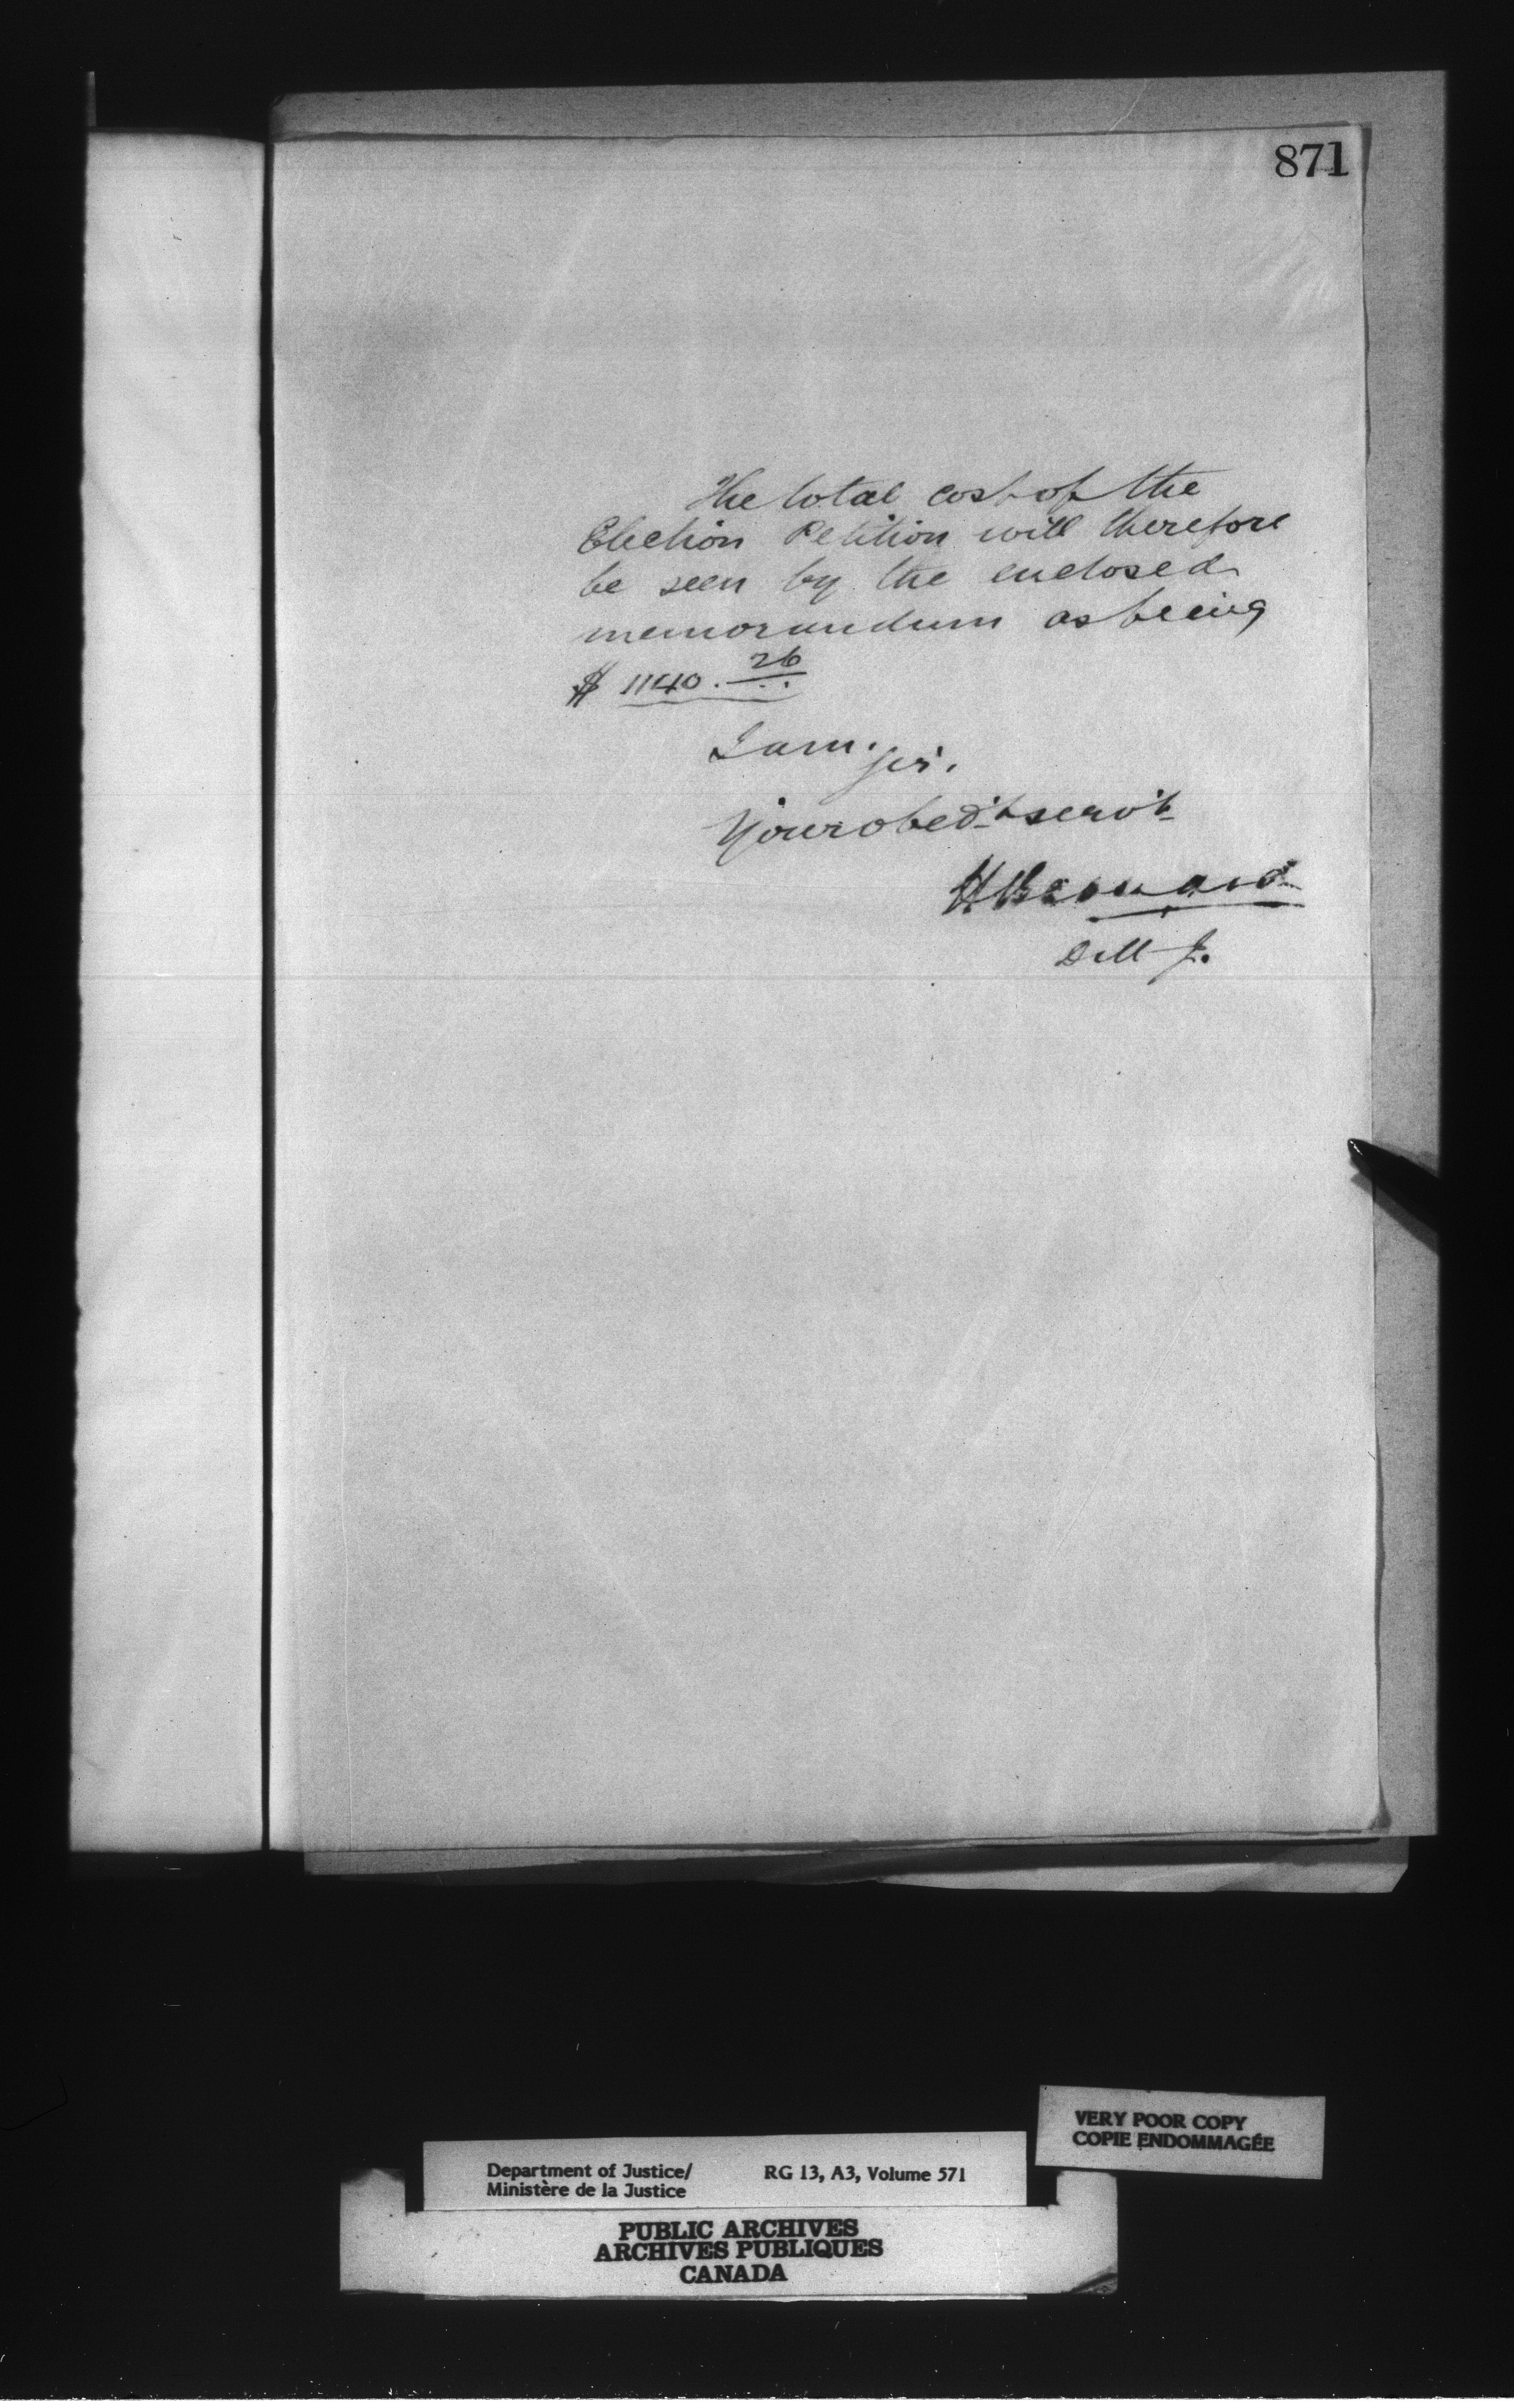 871
The total cost of the
Election Petition will therefore
be seen by the enclosed
memorandum as being
$ 1140. 26
I am.
Sir.
Your obed't serv't
H Bernard
D M J.
VERY POOR COPY
COPIE ENDOMMAGÉE
Department of Justice/ RG 13, A3, Volume 571
Ministère de la Justice
PUBLIC ARCHIVES
ARCHIVES PUBLIQUES
CANADA